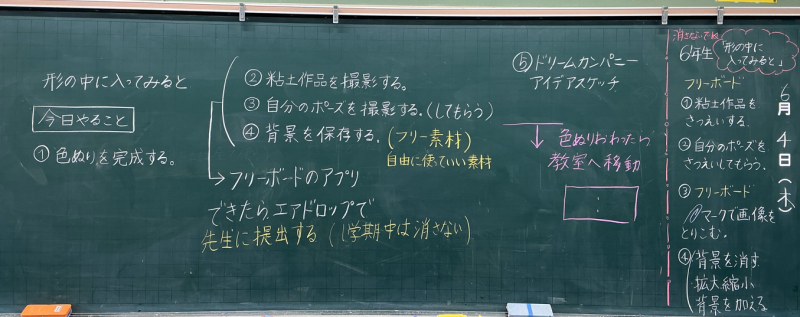 形の中に入ってみると
今日やること
① 色ぬりを完成する。
② 粘土作品を撮影する。
③ 自分のポーズを撮影する。(してもらう)
④ 背景を保存する。(フリー素材)
自由に使っていい素材
→フリーボードのアプリ
できたらエアドロップで
先生に提出する (1学期中は消さない)
⑤ ドリームカンパニー
アイデアスケッチ
↓ 色ぬりおわったら
教室へ移動
:
消さないでね
6年生「形の中に
入ってみると」
フリーボード
① 粘土作品を
さつえいする。
② 自分のポーズを
さつえいしてもらう。
③ フリーボード
マークで画像を
とりこむ。
④ 背景を消す
拡大縮小
背景を加える
6月4日(木)